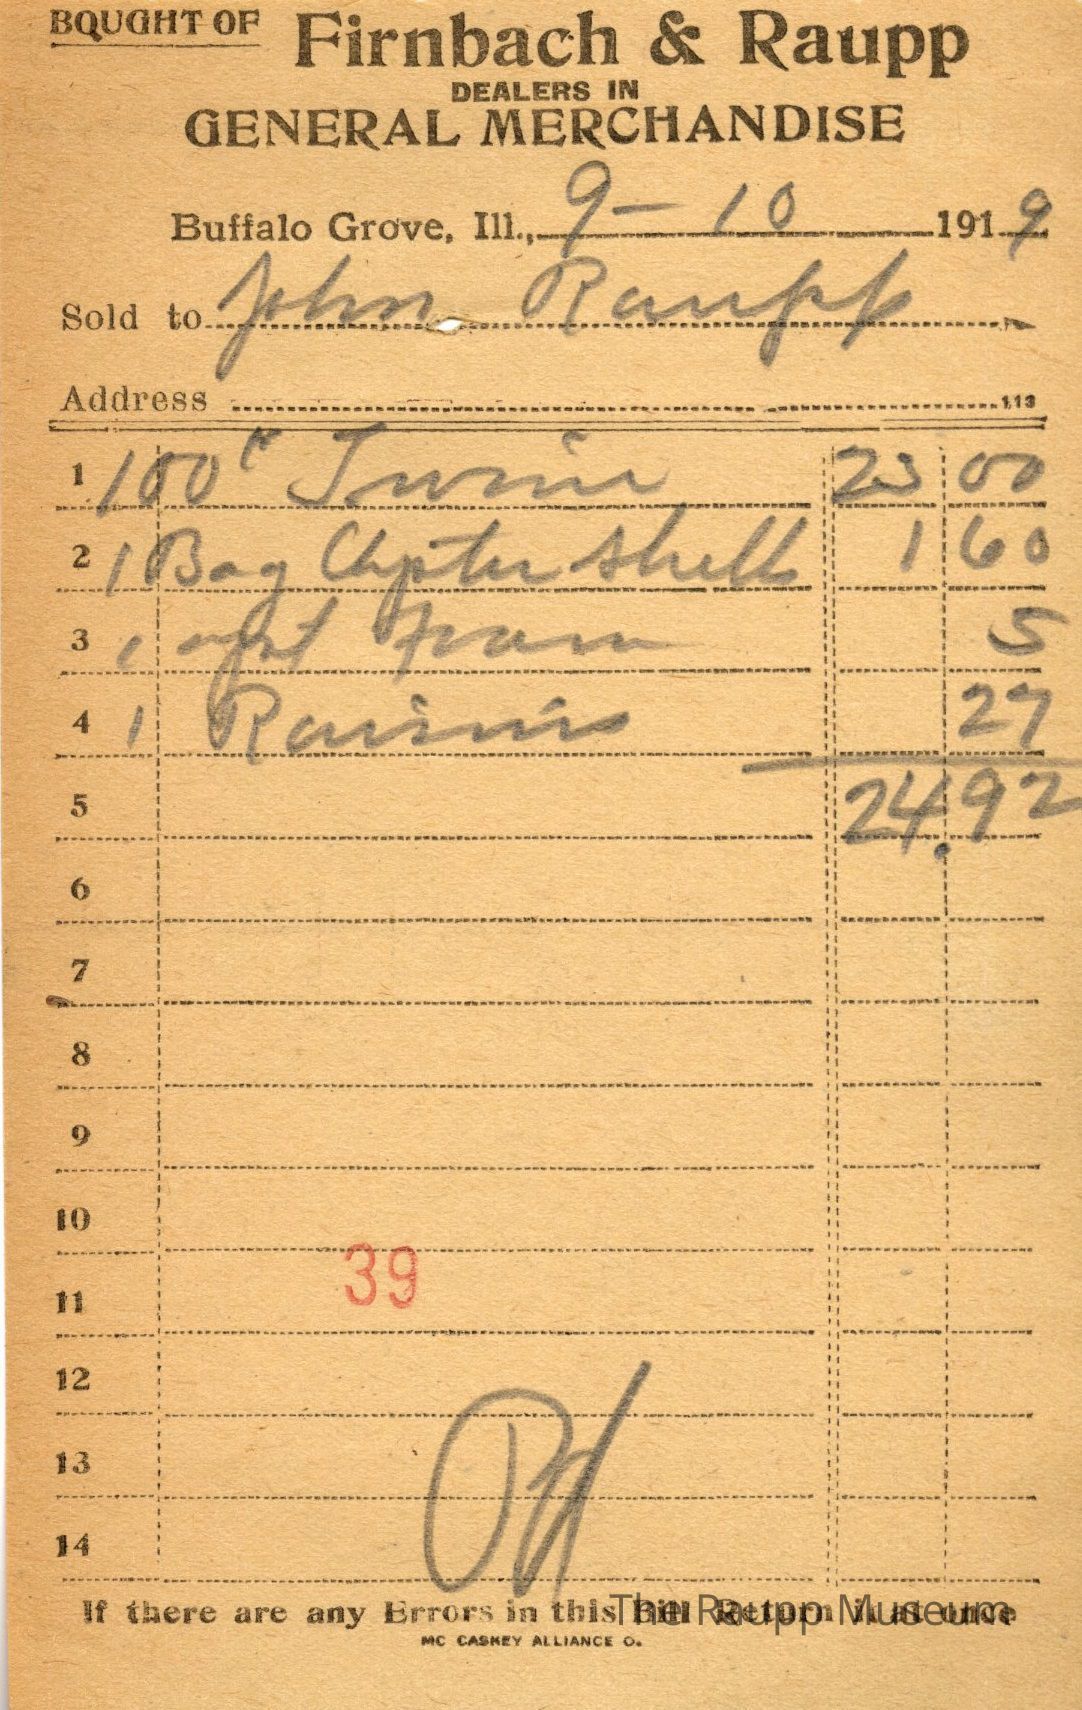 BOUGHT OF Firnbach & Raupp
DEALERS IN
GENERAL MERCHANDISE
Buffalo Grove, Ill., 9-10 1919
Sold to John Raupp
Address
113
1 100# Twine 23 00
2 1 Bag Oyster Shells 1 60
3 1 5
4 1 Raisins 27
5 24.92
6
7
8
9
10
39
11
12
13
14
Pd
If there are any Errors in this Bill Return it at once
The Raupp Museum
MC CASKEY ALLIANCE O.